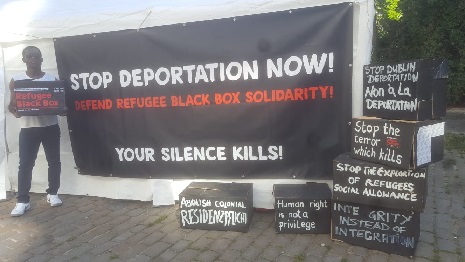 Refugee
Black Box
STOP DEPORTATION NOW!
DEFEND REFUGEE BLACK BOX SOLIDARITY!
YOUR SILENCE KILLS!
ABOLISH COLONIAL
RESIDENZPFLICHT
Human right
is not a
privilege
STOP DUBLIN
DEPORTATION
NON À LA
DEPORTATION
Stop the
terror
which kills
STOP THE
OF REFUGEES
SOCIAL ALLOWANCE
INTEGRITY
INSTEAD OF
INTEGRATION